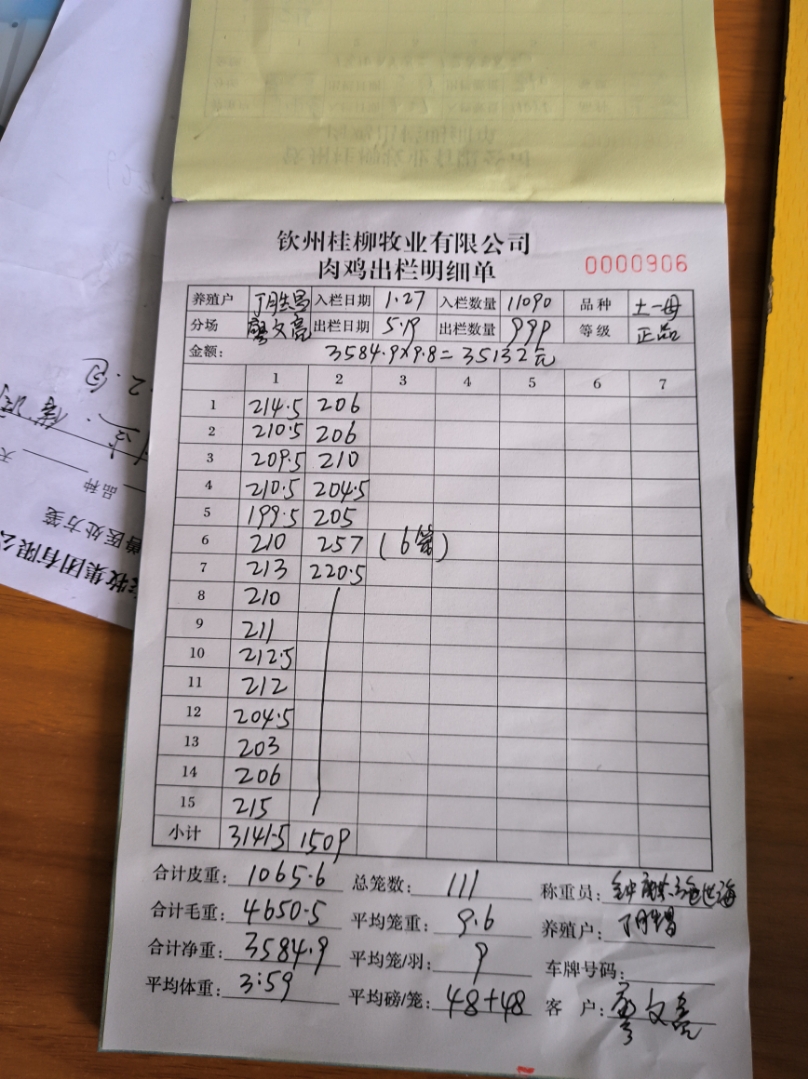 钦州桂柳牧业有限公司
肉鸡出栏明细单
0000906
养殖户 丁胜昌 入栏日期 1.27 入栏数量 11090 品种 土一母
分场 廖文亮 出栏日期 5.19 出栏数量 999 等级 正品
金额: 3584.9×9.8=35132元
1 2 3 4 5 6 7
1 214.5 206
2 210.5 206
3 209.5 210
4 210.5 204.5
5 199.5 205
6 210 257 (6笼)
7 213 220.5
8 210
9 211
10 212.5
11 212
12 204.5
13 203
14 206
15 215
小计 3141.5 1509
合计皮重: 1065.6 总笼数: 111 称重员:
合计毛重: 4650.5 平均笼重: 9.6 养殖户: 丁胜昌
合计净重: 3584.9 平均笼/羽: 9 车牌号码:
平均体重: 3:59 平均磅/笼: 48+48 客 户: 廖文亮
品种
天
兽医处方笺
牧集团有限公